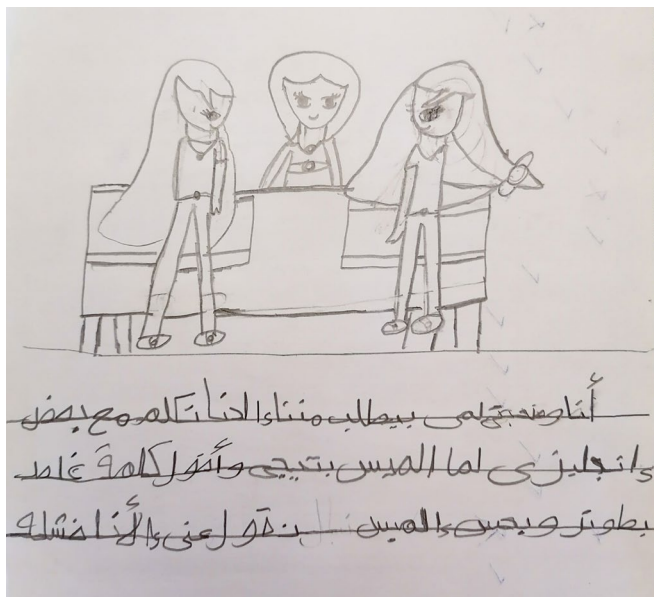 أنا وصحبتي لمى بيطلب مننا إحنا نتكلم مع بعض
إنجليزي لما الميس بتيجي وأقول كلمة غلط
بطوتر وبحس الميس نقول عني إلأنا فشله